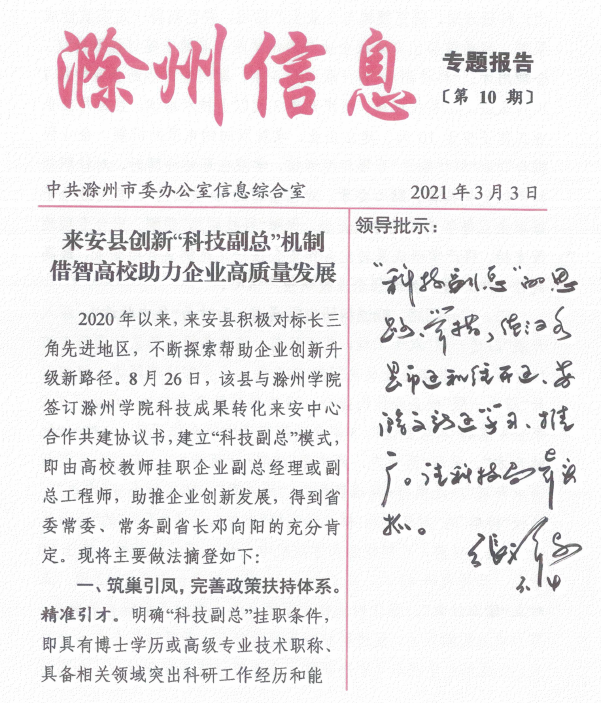 滁州信息
专题报告
〔第 10 期〕
中共滁州市委办公室信息综合室
2021 年 3 月 3 日
来安县创新“科技副总”机制
借智高校助力企业高质量发展
2020 年以来，来安县积极对标长三
角先进地区，不断探索帮助企业创新升
级新路径。8 月 26 日，该县与滁州学院
签订滁州学院科技成果转化来安中心
合作共建协议书，建立“科技副总”模式，
即由高校教师挂职企业副总经理或副
总工程师，助推企业创新发展，得到省
委常委、常务副省长邓向阳的充分肯
定。现将主要做法摘登如下：
一、筑巢引凤，完善政策扶持体系。
精准引才。明确“科技副总”挂职条件，
即具有博士学历或高级专业技术职称、
具备相关领域突出科研工作经历和能
领导批示：
“科技副总”的思
路、举措，值得各
县市区和经开区、苏
滁高新区学习、推
广。请科技局牵头
抓。